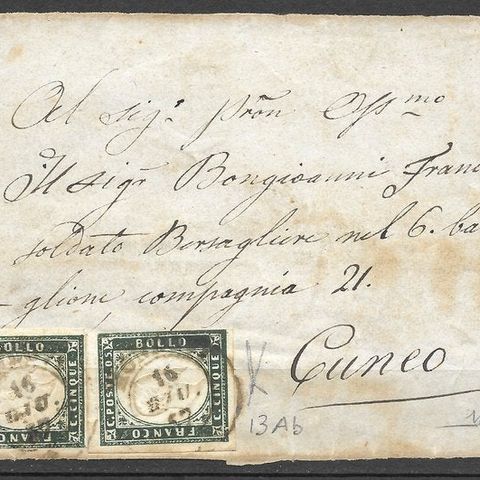 Al Sig.r Pron Oss.mo
Il Sig.r Bongioanni Franc
soldato Bersagliere nel 6. ba
glione compagnia 21.
Cuneo
BOLLO
C. CINQUE
FRANCO
16
GIU
BOLLO
C. POSTE OS.
C. CINQUE
FRANCO
16
GIU
13Ab